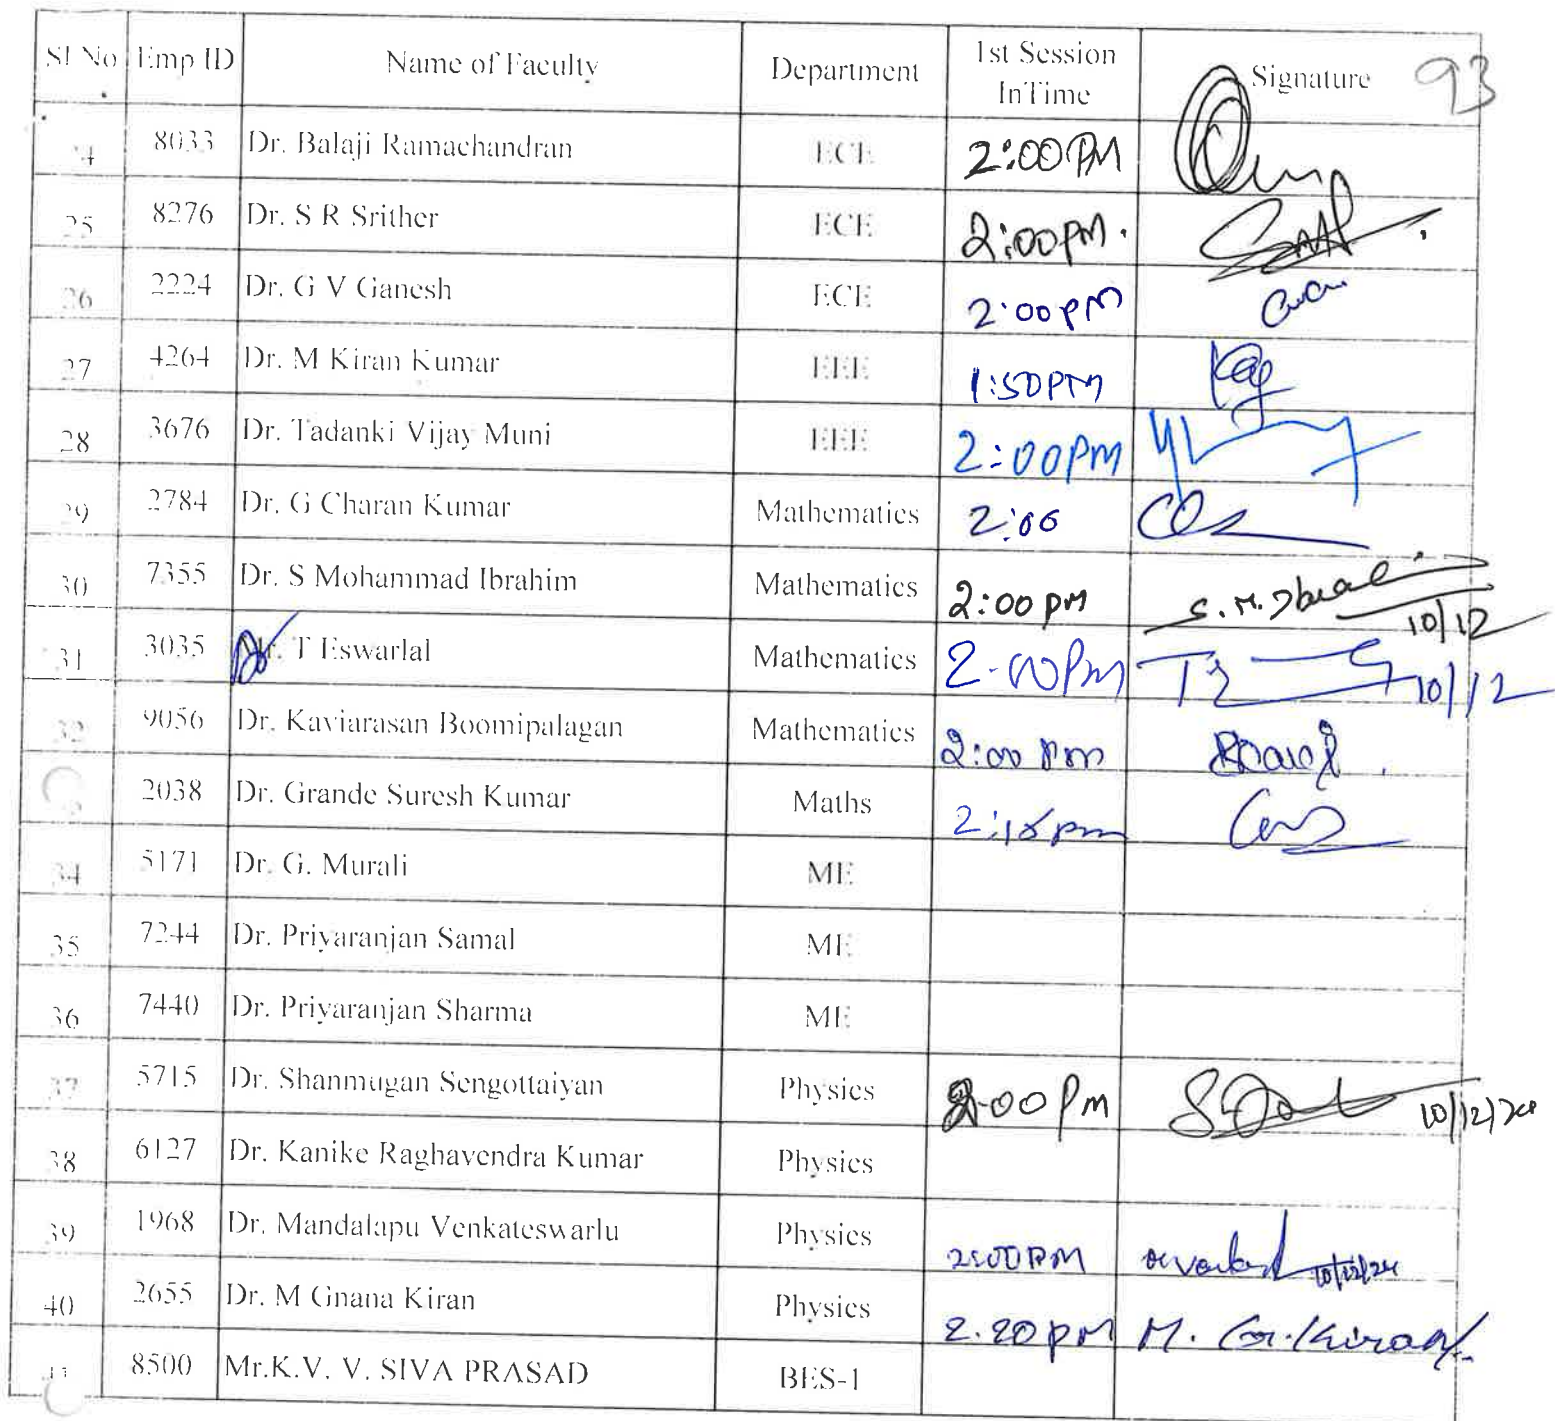 Sl No Emp ID Name of Faculty Department 1st Session InTime Signature 93
24 8033 Dr. Balaji Ramachandran ECE 2:00 PM
25 8276 Dr. S R Srither ECE 2:00pm.
26 2224 Dr. G V Ganesh ECE 2:00 pm
27 4264 Dr. M Kiran Kumar EEE 1:50PM
28 3676 Dr. Tadanki Vijay Muni EEE 2:00PM
29 2784 Dr. G Charan Kumar Mathematics
30 7355 Dr. S Mohammad Ibrahim Mathematics 2:00 pm 10/12
31 3035 Dr. T Eswarlal Mathematics 2-00Pm 10/12
32 9056 Dr. Kaviarasan Boomipalagan Mathematics 2:00 Pm
2038 Dr. Grande Suresh Kumar Maths
34 5171 Dr. G. Murali ME
35 7244 Dr. Priyaranjan Samal ME
36 7440 Dr. Priyaranjan Sharma ME
37 5715 Dr. Shanmugan Sengottaiyan Physics 2.00 Pm 10/12/24
38 6127 Dr. Kanike Raghavendra Kumar Physics
39 1968 Dr. Mandalapu Venkateswarlu Physics 2:00PM 10/12/24
40 2655 Dr. M Gnana Kiran Physics 2.20pm M. G. Kiran
41 8500 Mr.K.V. V. SIVA PRASAD BES-1